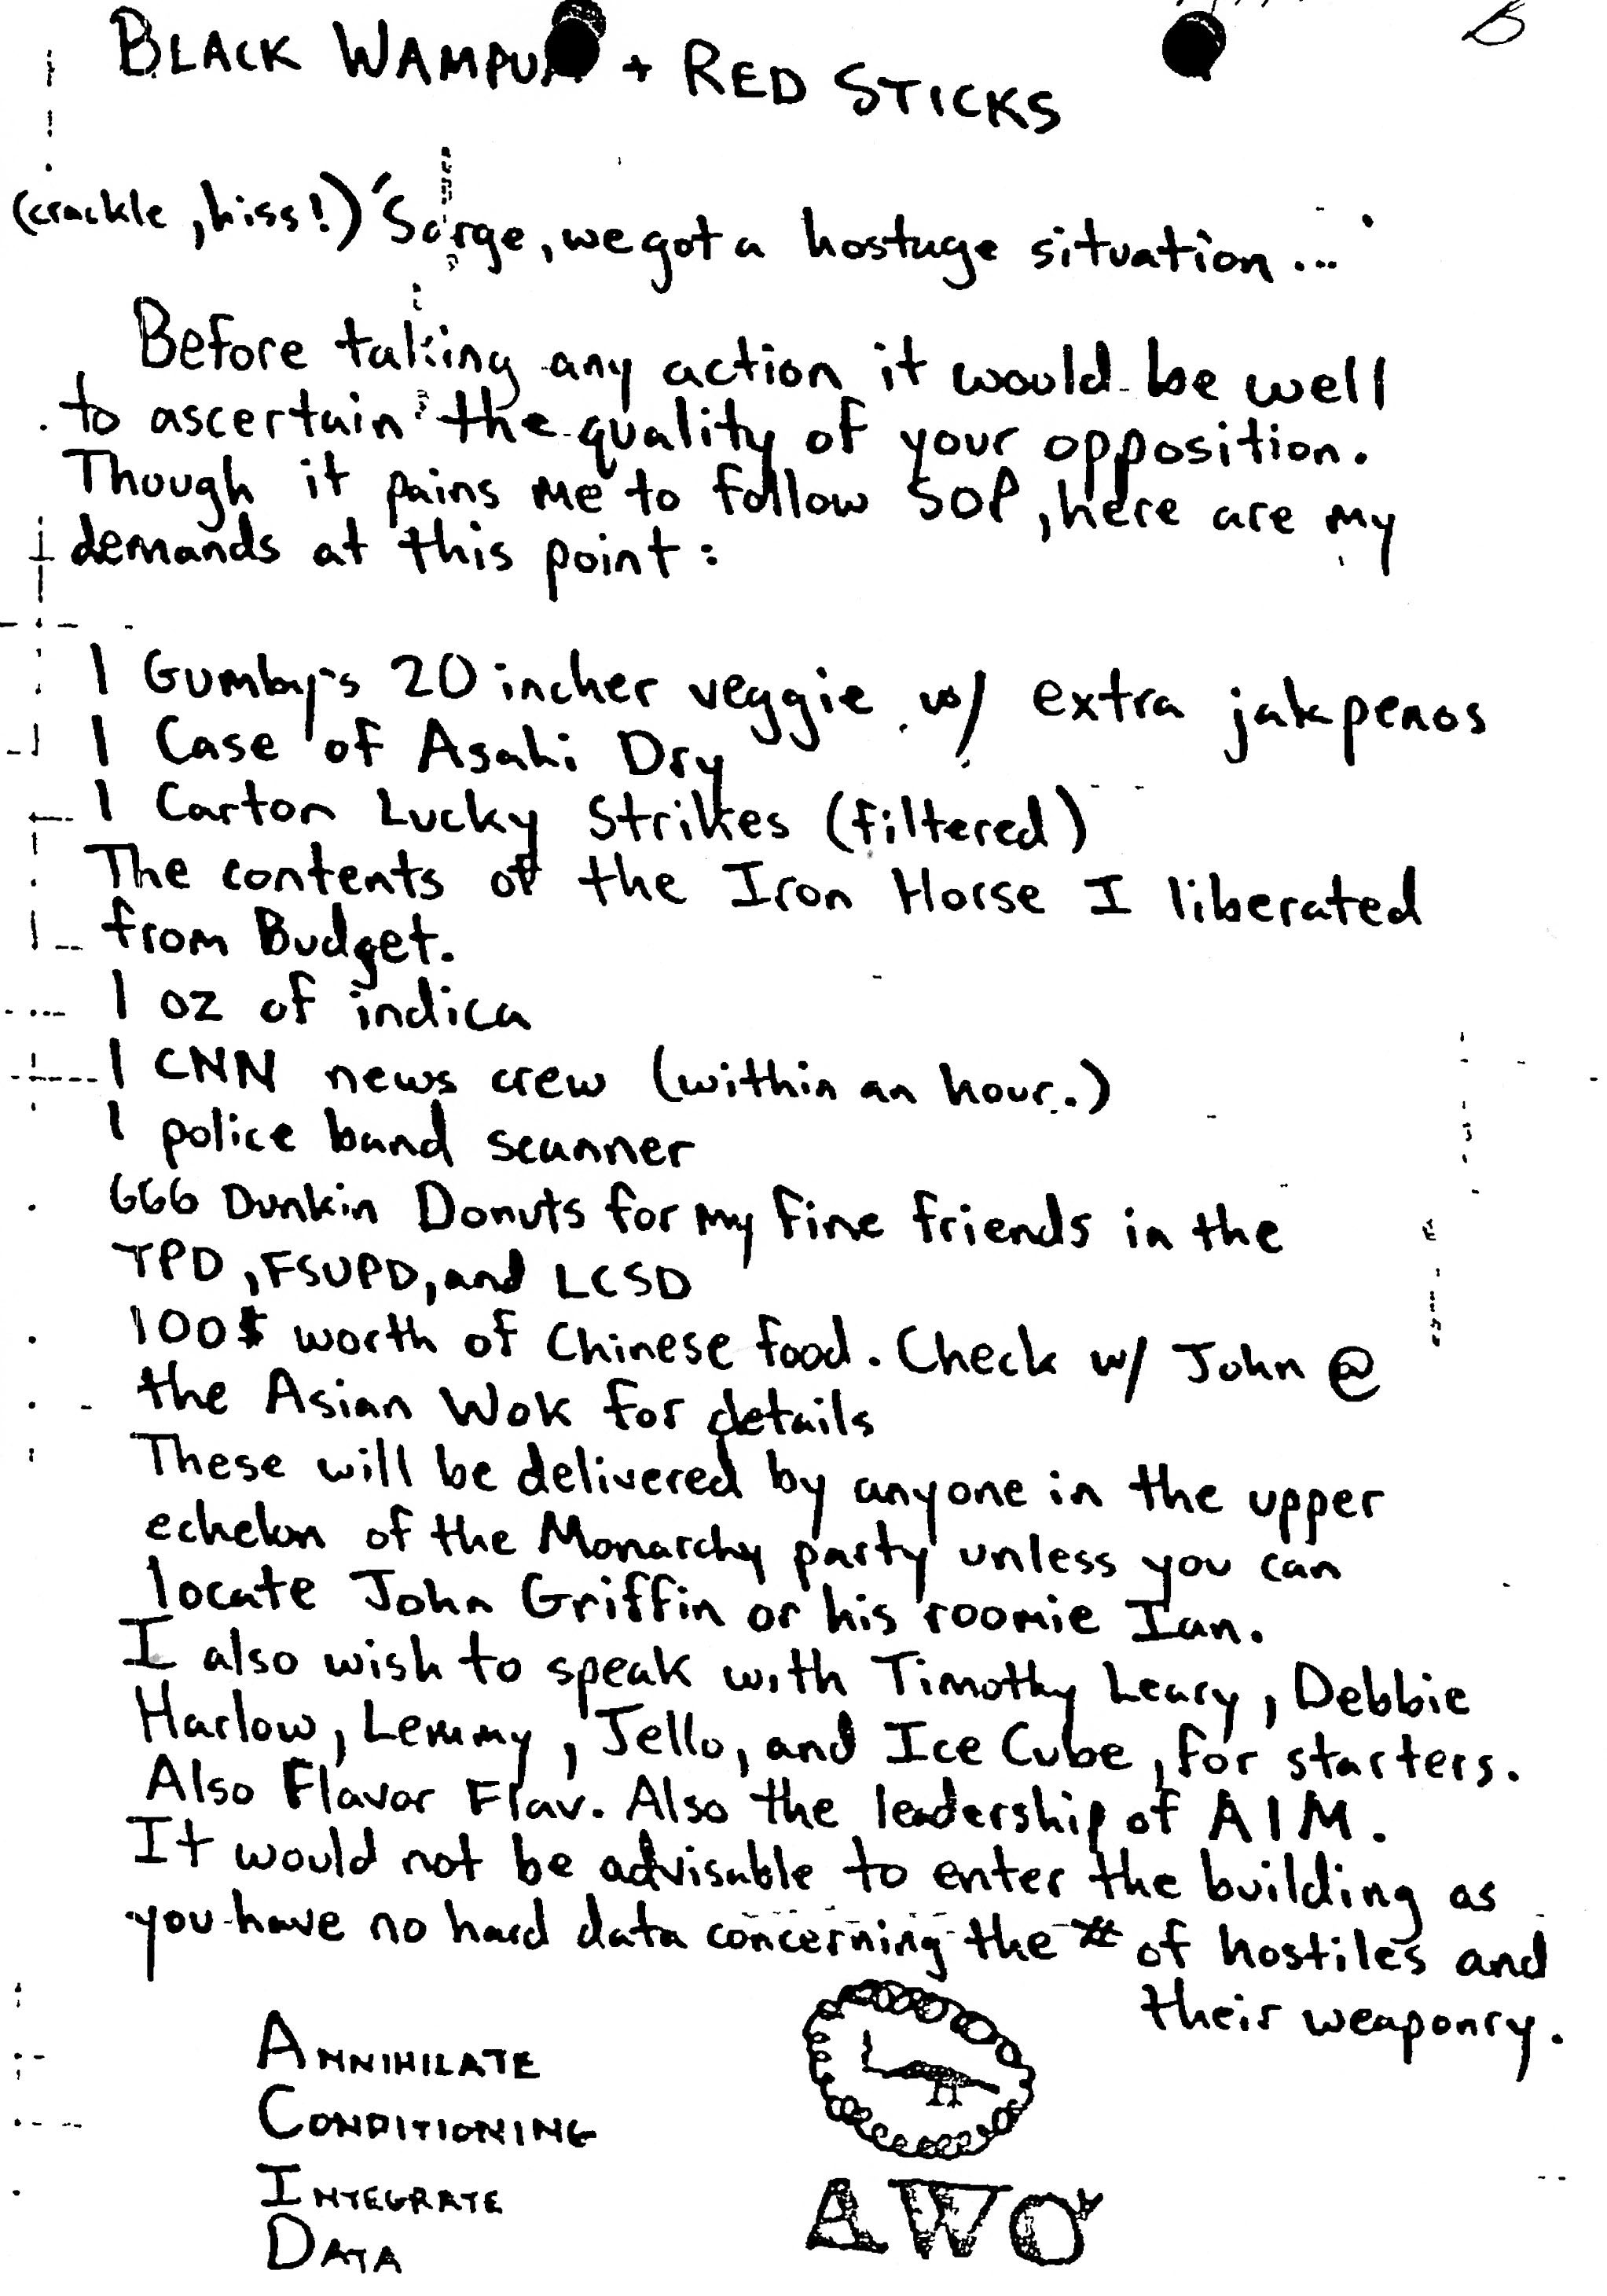 B
BLACK WAMPUM + RED STICKS
(crackle, hiss!) "Sarge, we got a hostage situation..."
Before taking any action it would be well
to ascertain the quality of your opposition.
Though it pains me to follow SOP, here are my
demands at this point:
1 Gumby's 20 incher veggie w/ extra jalapenos
1 Case of Asahi Dry
1 Carton Lucky Strikes (filtered)
The contents of the Iron Horse I liberated
from Budget.
1 oz of indica
1 CNN news crew (within an hour.)
1 police band scanner
666 Dunkin Donuts for my fine friends in the
TPD, FSUPD, and LCSD
100$ worth of Chinese food. Check w/ John @
the Asian Wok for details
These will be delivered by anyone in the upper
echelon of the Monarchy party unless you can
locate John Griffin or his roomie Ian.
I also wish to speak with Timothy Leary, Debbie
Harlow, Lemmy, Jello, and Ice Cube, for starters.
Also Flavor Flav. Also the leadership of AIM.
It would not be advisable to enter the building as
you have no hard data concerning the # of hostiles and
their weaponry.
ANNIHILATE
CONDITIONING
INTEGRATE
DATA
AWO